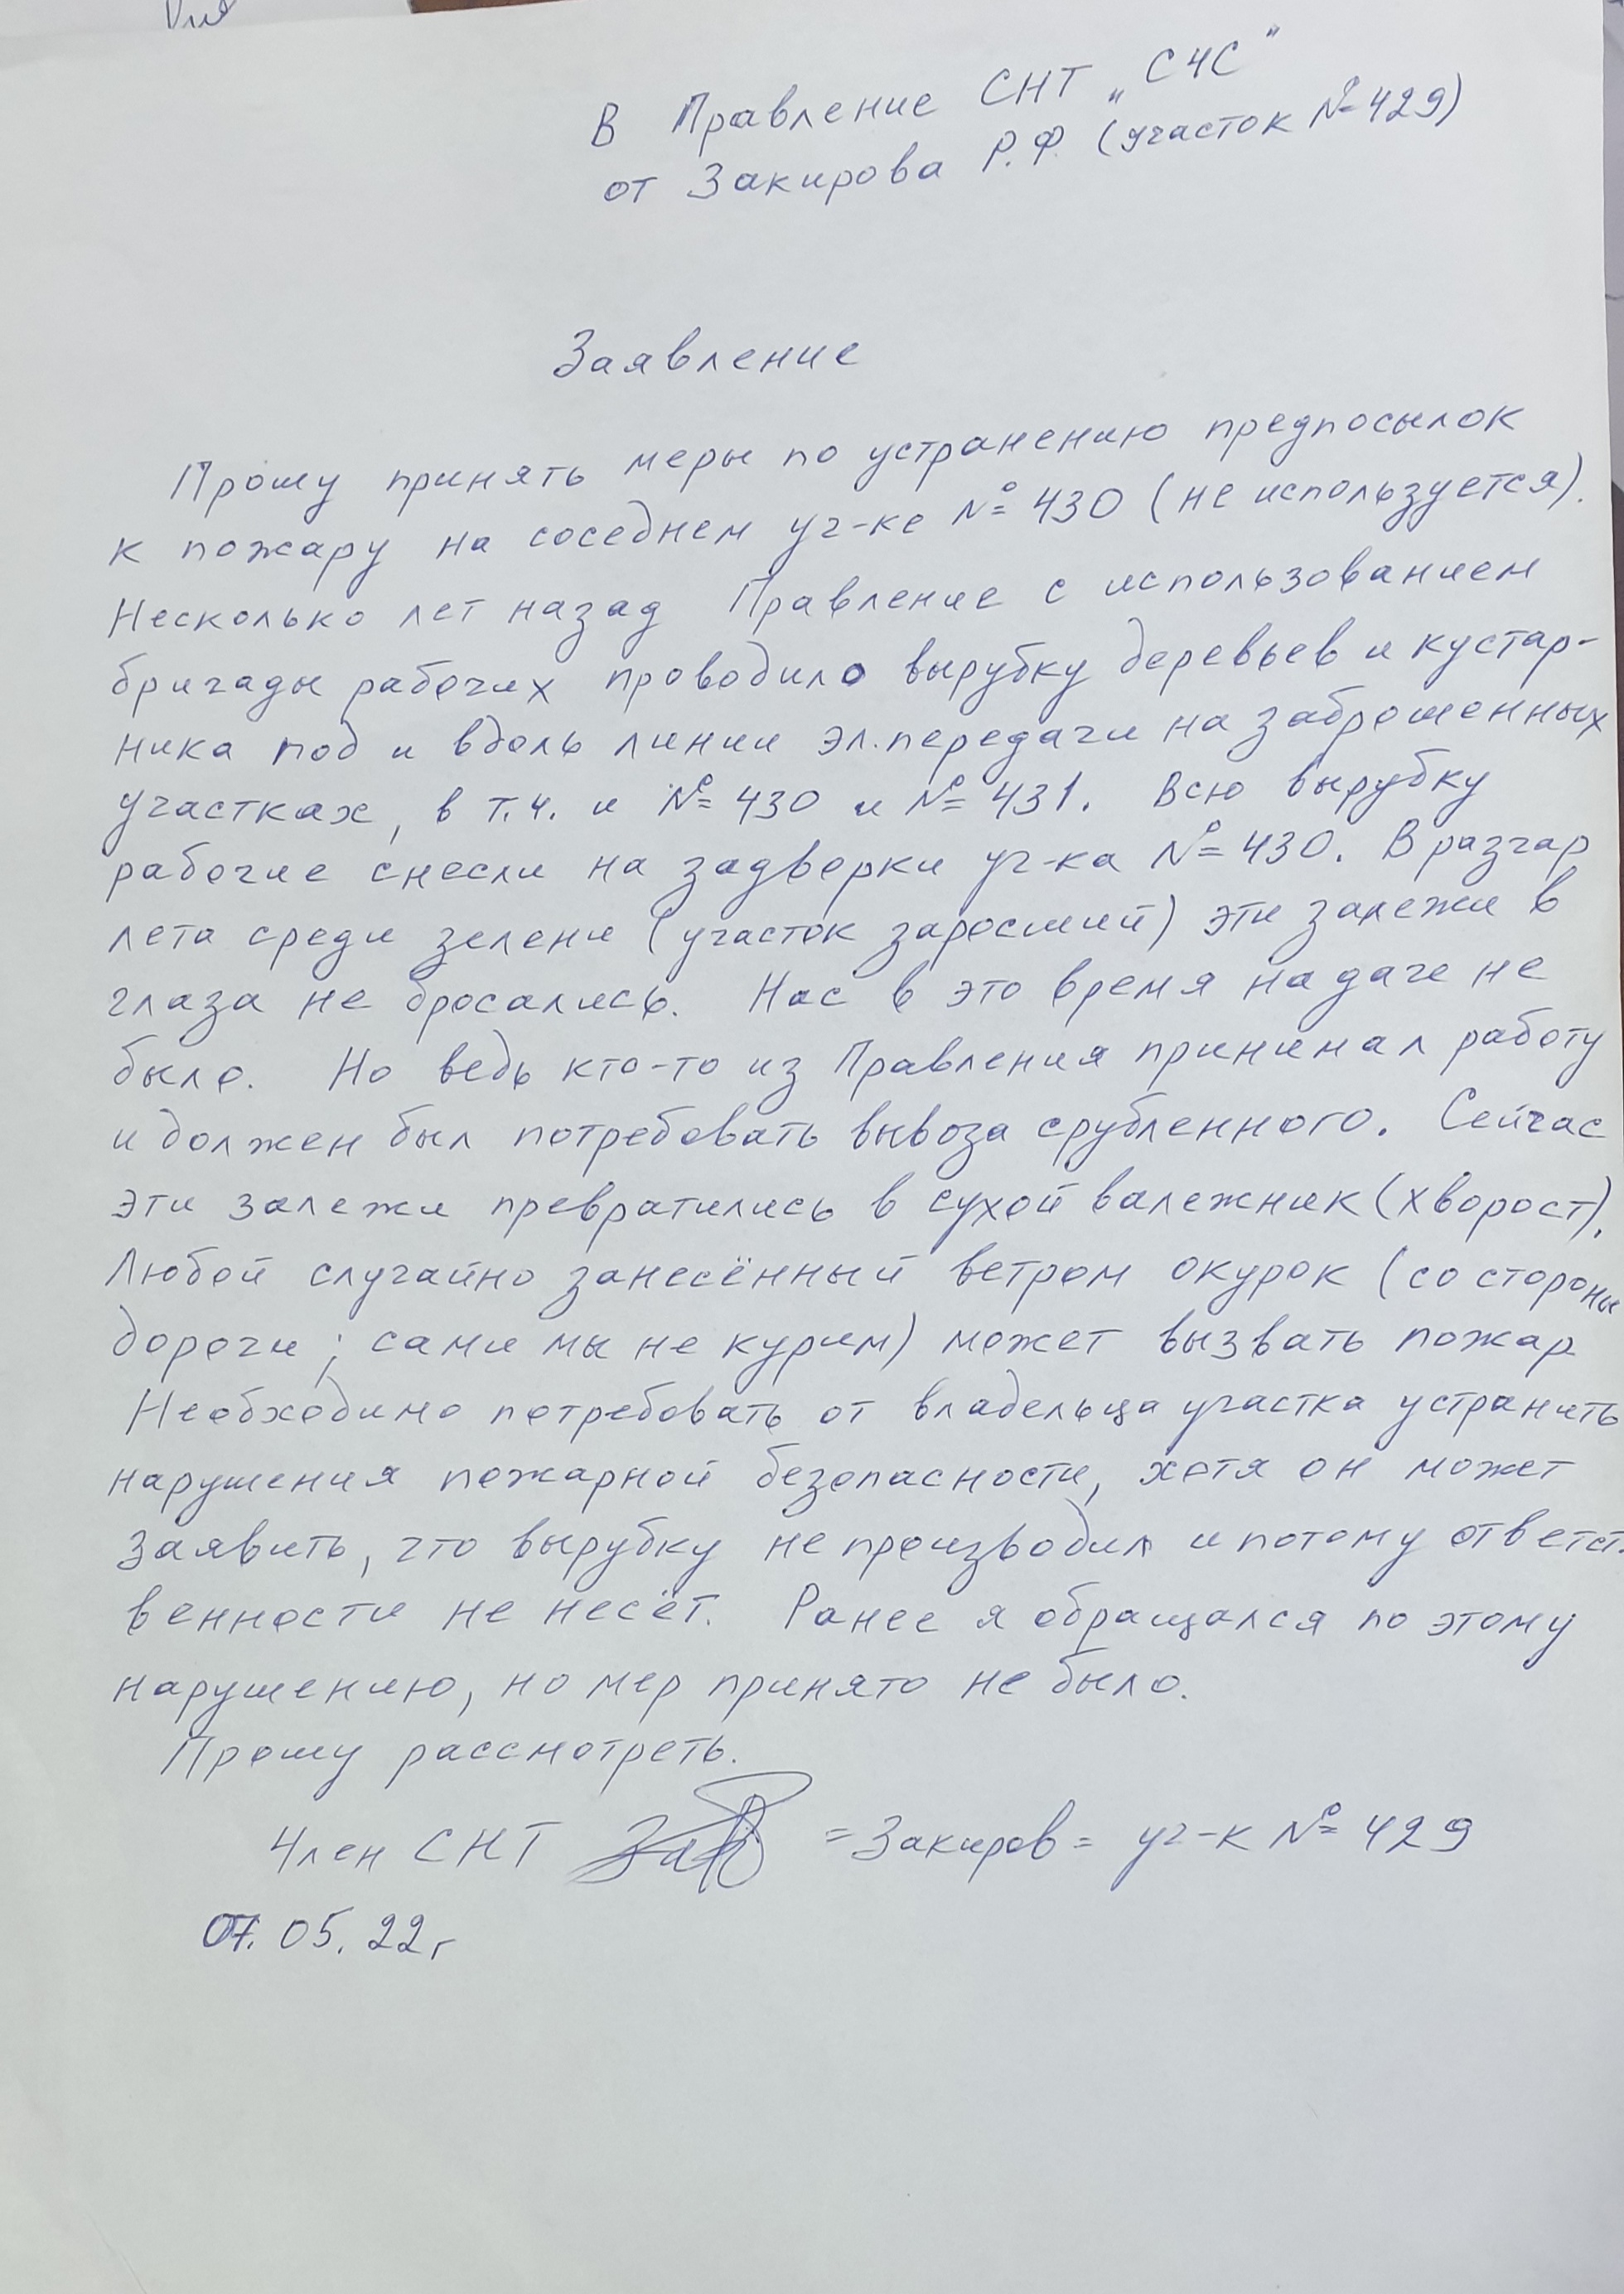 Для
В Правление СНТ „СЧС"
от Закирова Р.Ф. (участок № 429)
Заявление
Прошу принять меры по устранению предпосылок
к пожару на соседнем уч-ке № 430 (не используется).
Несколько лет назад Правление с использованием
бригады рабочих проводило вырубку деревьев и кустар-
ника под и вдоль линии эл.передачи на заброшенных
участках, в т.ч. и № 430 и № 431. Всю вырубку
рабочие снесли на задворки уч-ка № 430. В разгар
лета среди зелени (участок заросший) эти залежи в
глаза не бросались. Нас в это время на даче не
было. Но ведь кто-то из Правления принимал работу
и должен был потребовать вывоза срубленного. Сейчас
эти залежи превратились в сухой валежник (хворост).
Любой случайно занесённый ветром окурок (со стороны
дороги; сами мы не курим) может вызвать пожар
Необходимо потребовать от владельца участка устранить
нарушения пожарной безопасности, хотя он может
заявить, что вырубку не производил и потому ответст-
венности не несёт. Ранее я обращался по этому
нарушению, но мер принято не было.
Прошу рассмотреть.
Член СНТ = Закиров = уч-к № 429
07.05.22г